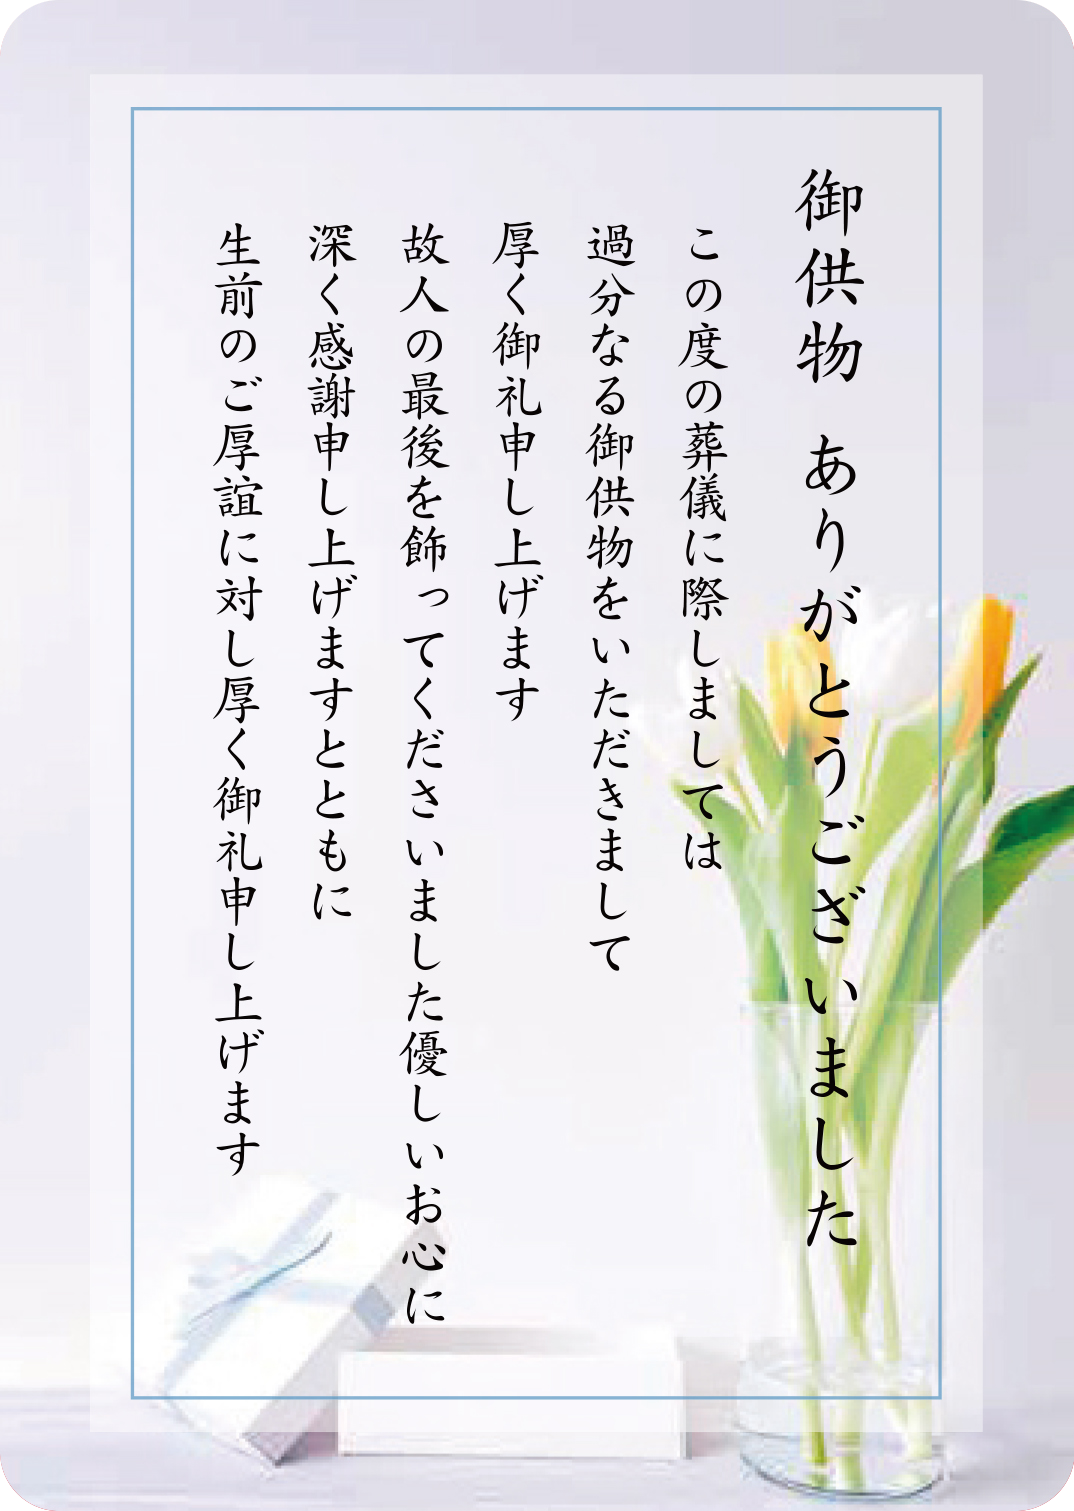 御供物　ありがとうございました
この度の葬儀に際しましては
過分なる御供物をいただきまして
厚く御礼申し上げます
故人の最後を飾ってくださいました優しいお心に
深く感謝申し上げますとともに
生前のご厚誼に対し厚く御礼申し上げます